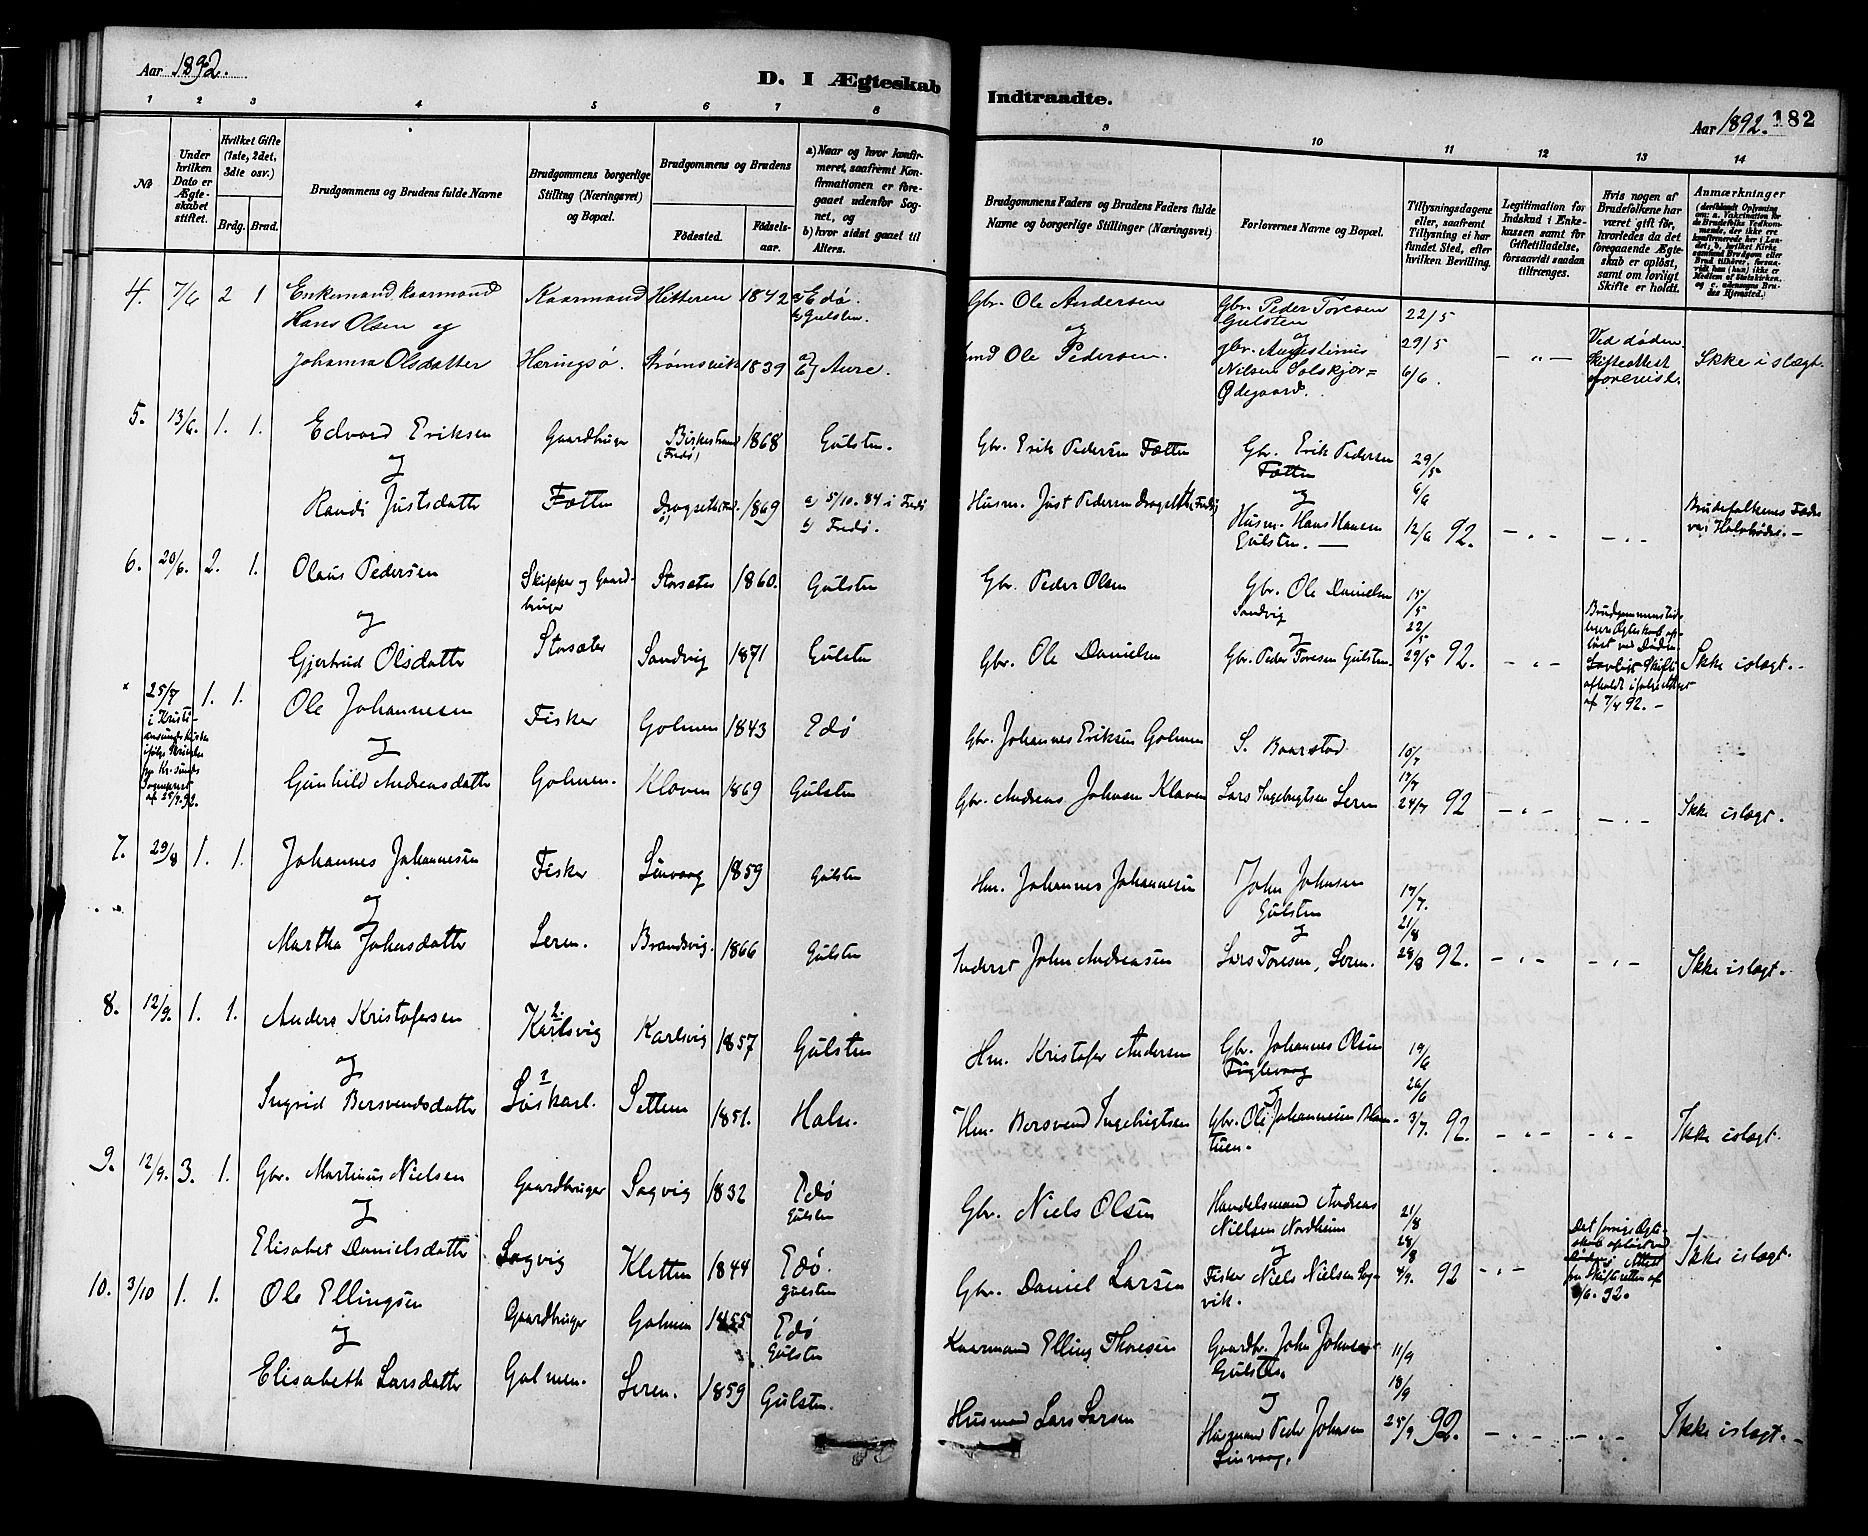 Aar 1892.
D. I Ægteskab
Indtraadte.
Aar 1892. 182
1 2 3 4 5 6 7 8 9 10 11 12 13 14
№
Under hvilken Dato er Ægteskabet stiftet.
Hvilket Gifte (1ste, 2det, 3die osv.)
Brdg. Brud.
Brudgommens og Brudens fulde Navne
Brudgommens borgerlige Stilling (Næringsvei) og Bopæl.
Brudgommens og Brudens
Fødested.
Fødselsaar.
a) Naar og hvor konfirmeret, saafremt Konfirmationen er foregaaet udenfor Sognet, og
b) hvor sidst gaaet til Alters.
Brudgommens Faders og Brudens Faders fulde Navne og borgerlige Stillinger (Næringsvei)
Forlovernes Navne og Bopæl.
Tillysningsdagene eller, saafremt Tillysning ei har fundet Sted, efter hvilken Bevilling.
Legitimation for Indskud i Enkekassen samt for Giftetilladelse, forsaavidt saadan tiltrænges.
Hvis nogen af Brudefolkene har været gift før, hvorledes da det foregaaende Ægteskab er opløst, samt om lovligt Skifte er holdt.
Anmærkninger
4. 7/6 2 1 Enkemand, kaarmand Kaarmand Hitteren 1842 a) Edø. b) Gulsten. Gbr. Ole Andersen Gbr. Peder Toresen Gulsten 22/5
Hans Olsen og og og 29/5 Ved døden
Johanna Olsdatter Haringsø. Strømsvik 1839 a) b) Aure. Ole Pedersen. gbr. Augustinus Nilsen Solskjær= Ødegaard. 6/6. — " — Skifteattest forevist. Ikke i slægt.
5. 13/6. 1. 1. Edvard Eriksen Gaardbruger Birkestrand (Fredø) 1868 Gulsten. Gbr. Erik Pedersen Fætten Gbr. Erik Pedersen Fætten 29/5
og og 6/6
Randi Justsdatter Fætten 1869 a) 5/10. 84 i Fredø b) Fredø. Husm. Just Pedersen Husm. Hans Hansen Gulsten. — 12/6 92. — " — — " —
6. 20/6. 2. 1. Olaus Pedersen Skipper og Gaardbruger Storsæter 1860. Gulsten Gbr. Peder Olsen Gbr. Ole Danielsen Sandvig 15/5
og og 22/5
Gjertrud Olsdatter Storsæter Sandvig 1871 Gulsten Gbr. Ole Danielsen Gbr. Peder Toresen Gulsten. 29/5 92. — " — Ikke islægt. -
" 25/7 1. 1. Ole Johannesen Fisker Golmen 1843 Edø Gbr. Johannes Eriksen Golmen S. Baarstad 10/7
og 17/7
Gunhild Andreasdatter Golmen. Kloven 1869 Gulsten Gbr. Andreas Johnsen Kloven Lars Ingebrigtsen Leren 24/7 92 — " — — " — Ikke islægt.
7. 29/8 1. 1. Johannes Johannesen Fisker Linvaag 1859 Gulsten Hm. Johannes Johannesen John Johnsen Gulsten 17/7.
og og 21/8
Martha Johnsdatter Leren. Brandsvig. 1866 Gulsten Inderst John Andreasen Lars Toresen, Leren. 28/8 92. — " — — " — Ikke islægt. -
8. 12/9. 1. 1. Anders Kristofersen Karlsvig Karlsvig 1857 Gulsten Hm. Kristofer Andersen Gbr. Johannes Olsen Fuglevaag 19/6
og og 26/6
Ingrid Bersvendsdatter Settem 1851. Halse. Hm. Bersvend Ingebrigtsen Gbr. Ole Johannesen 3/7. 92. — " — — " — Ikke islægt.
9. 12/9. 3. 1. Gbr. Martinus Nielsen Gaardbruger Sagvig 1832 Edø Gulsten Gbr. Niels Olsen Handelsmand Andreas Nielsen Nordheim 21/8
og og 28/8
Elisabet Danielsdatter Sagvig Kletten 1844 Edø. Gulsten Gbr. Daniel Larsen Fisker Niels Nielsen Sagvik. 4/9. 92 — " — Ikke islægt.
10. 3/10 1. 1. Ole Ellingsen Gaardbruger Golmen 1855 Edø Gulsten Kaarmand Elling Thoresen Gaardbr. John Johnsen Gulsten. 11/9
og og 18/9
Elisabeth Larsdatter Golmen. Leren. 1859 Gulsten. Husmand Lars Larsen Husmand Peder Johnsen Linvaag. 25/9 92. — " — — " — Ikke islægt. -